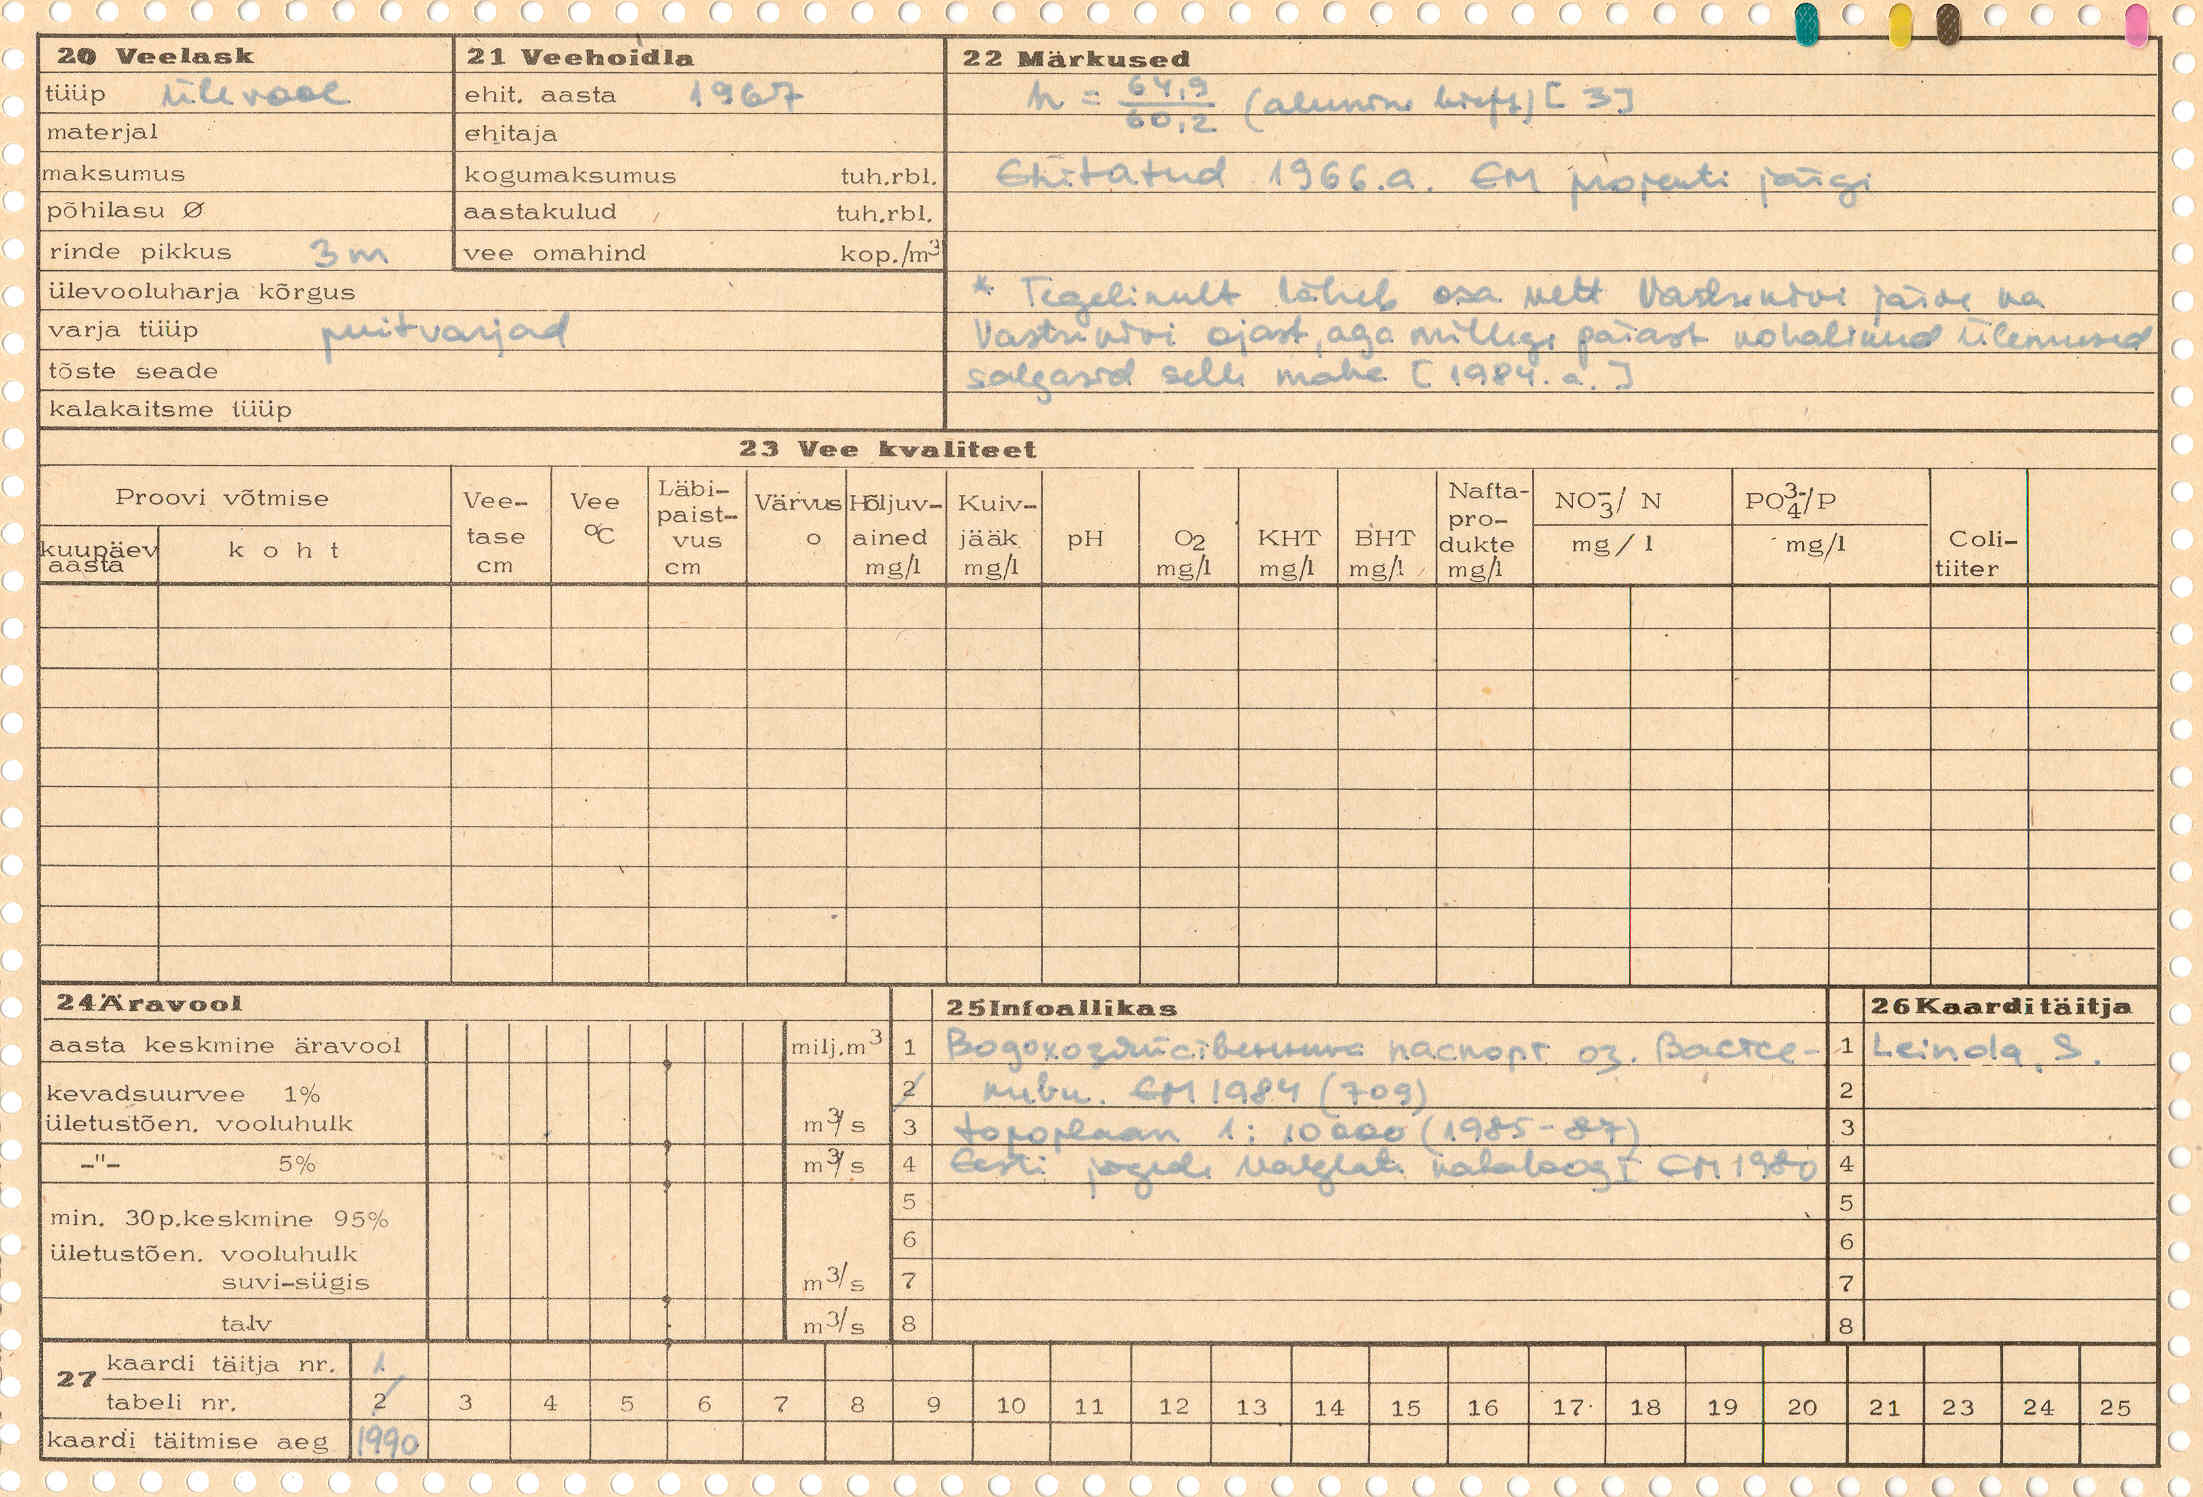 20 Veelask
tüüp ülevool
materjal
maksumus
põhilasu Ø
rinde pikkus 3m
ülevooluharja kõrgus
varja tüüp puitvarjad
tõste seade
kalakaitsme tüüp
21 Veehoidla
ehit. aasta 1967
ehitaja
kogumaksumus tuh.rbl.
aastakulud tuh.rbl.
vee omahind kop./m³
22 Märkused
h = 64,9 / 60,2 (alumine bieff) [3]
Ehitatud 1966.a. EM projekti järgi
* Tegelikult läheb osa vett Vastsekivi järve ka
Vastsekivi ojast, aga millegi pärast kohalikud ülemused
salgasid selle maha [1984.a.]
23 Vee kvaliteet
Proovi võtmise
kuupäev aasta
koht
Vee-tase cm
Vee °C
Läbi-paist-vus cm
Värvus o
Hõljuv-ained mg/l
Kuiv-jääk mg/l
pH
O₂ mg/l
KHT mg/l
BHT mg/l
Nafta-pro-dukte mg/l
NO₃⁻/ N mg/l
PO₄³⁻/P mg/l
Coli-tiiter
24 Äravool
aasta keskmine äravool milj.m³
kevadsuurvee 1%
ületustõen. vooluhulk m³/s
-"- 5% m³/s
min. 30p.keskmine 95%
ületustõen. vooluhulk
suvi-sügis m³/s
talv m³/s
25 Infoallikas
1 Водохозяйственный паспорт оз. Вастсе-
2 киви. EM 1984 (709)
3 topoplaan 1: 10000 (1985-87)
4 Eesti jõgede valglate kataloog I EM 1980
5
6
7
8
26 Kaarditäitja
1 Leinola, S.
2
3
4
5
6
7
8
27 kaardi täitja nr. 1
tabeli nr. 2 3 4 5 6 7 8 9 10 11 12 13 14 15 16 17 18 19 20 21 23 24 25
kaardi täitmise aeg 1990